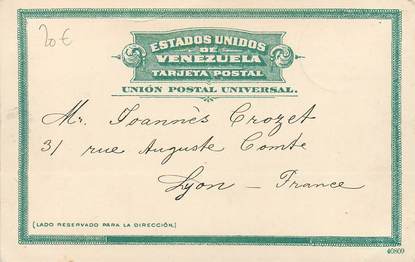 20€
ESTADOS UNIDOS
DE
VENEZUELA
TARJETA POSTAL
UNIÓN POSTAL UNIVERSAL.
Mr. Joannès Crozet
31 rue Auguste Comte
Lyon - France
(LADO RESERVADO PARA LA DIRECCIÓN.)
40809